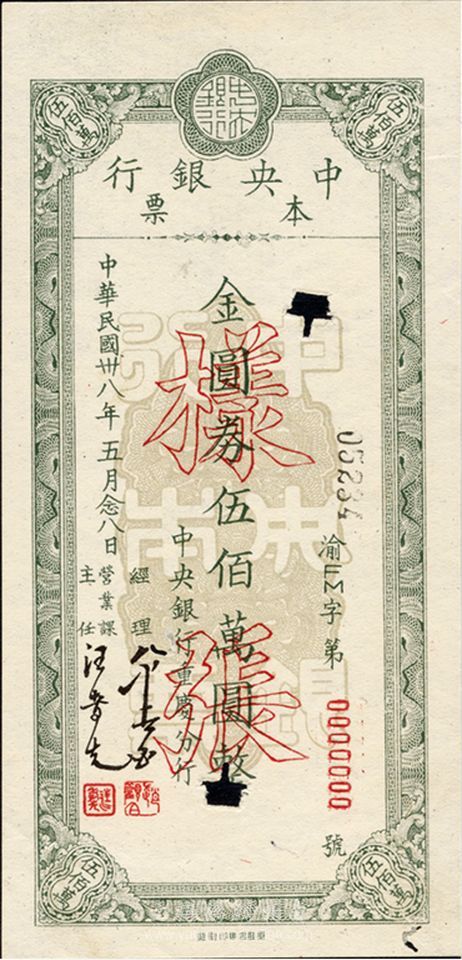 中央銀行
伍佰萬
伍佰萬
中央銀行
本票
05234
渝ΠΣ字第
0000000
號
金圓券伍佰萬圓整
樣張
中央銀行重慶分行
經理
營業課
主任
汪
中華民國卅八年五月念八日
伍佰萬
伍佰萬